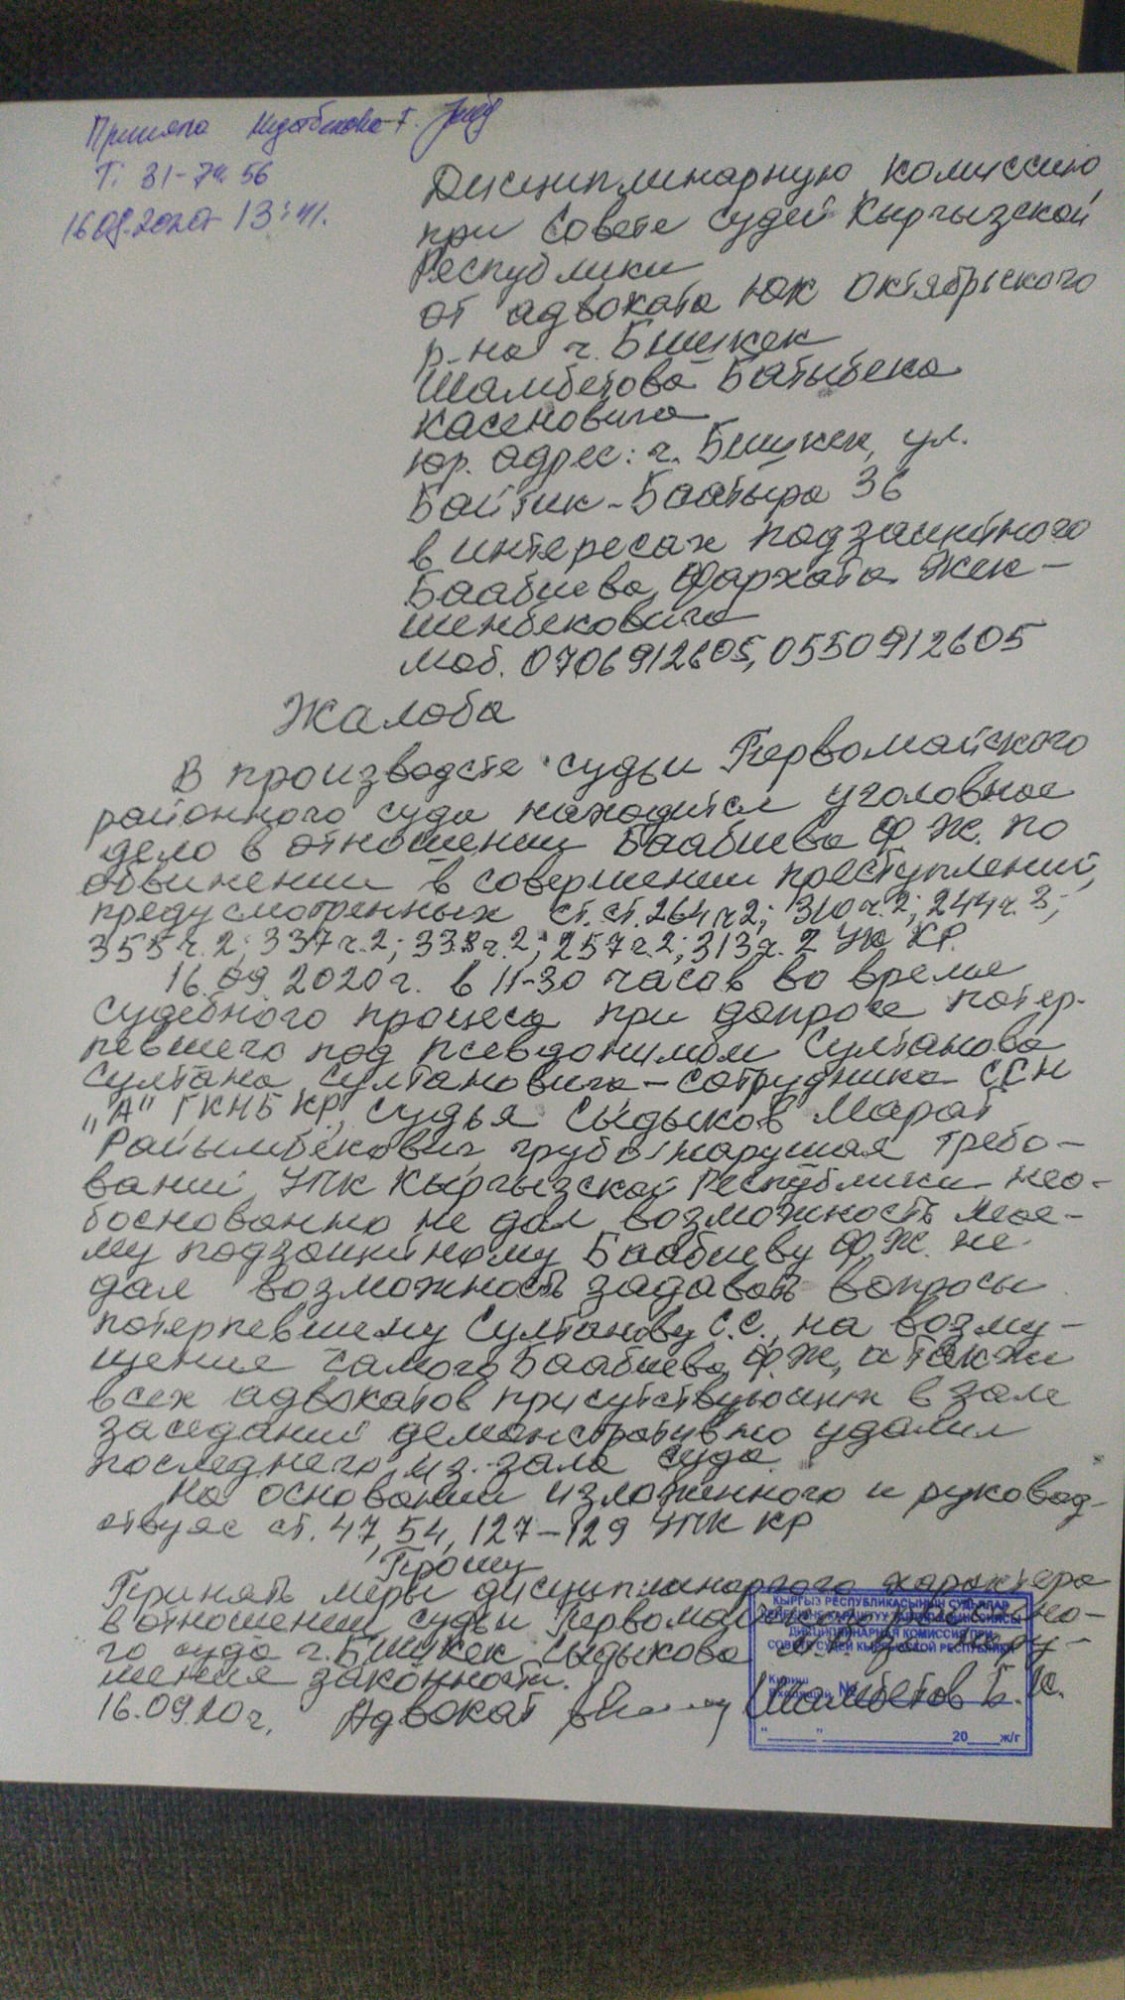 Приняла
Т. 31-74 56
16.09.2020 13:41.
Дисциплинарную комиссию
при Совете судей Кыргызской
Республики
от адвоката ЮК Октябрьского
р-на г. Бишкек
Шамбетова Батыбека
Касеновича
юр. адрес: г. Бишкек, ул.
Байтик-Баатыра 36
в интересах подзащитного
Баабиева Фархата Жек-
шенбековича
моб. 0706912605, 0550912605
Жалоба
В производсте судьи Первомайского
районного суда находится уголовное
дело в отношении Баабиева Ф.Ж. по
обвинении в совершении преступлений,
предусмотренных ст.ст. 264 ч 2; 310 ч.2; 244 ч.3;
355 ч.2; 337 ч.2; 338 ч.2; 257 ч.2; 313 ч.2 УК КР.
16.09.2020 г. в 11-30 часов во время
судебного процесса при допросе потер-
певшего под псевдонимом Султанова
Султана Султановича - сотрудника ССН
„А" ГКНБ КР, судья Сыдыков Марат
Райымбекович грубо нарушая требо-
ваний УПК Кыргызской Республики нео-
боснованно не дал возможность мое-
му подзащитному Баабиеву Ф.Ж. не
дал возможность задавать вопросы
потерпевшему Султанову С.С., на возму-
щение самого Баабиева Ф.Ж, а также
всех адвокатов присутствующих в зале
заседаний демонстративно удалил
последнего из зала суда.
На основании изложенного и руковод-
ствуяс ст. 47, 54, 127-129 УПК КР
Прошу
Принять меры дисциплинарного характера
в отношении судьи Первомайского
го суда г. Бишкек Сыдыкова
шения законности.
16.09.20 г. Адвокат Шамбетов Б.К.
КЫРГЫЗ РЕСПУБЛИКАСЫНЫН СУДЬЯЛАР
ДИСЦИПЛИНАРНАЯ КОМИССИЯ ПРИ
СОВЕТЕ СУДЕЙ КЫРГЫЗСКОЙ РЕСПУБЛИКИ
Кириш
Входящий №
"____" ____ 20____ж/г